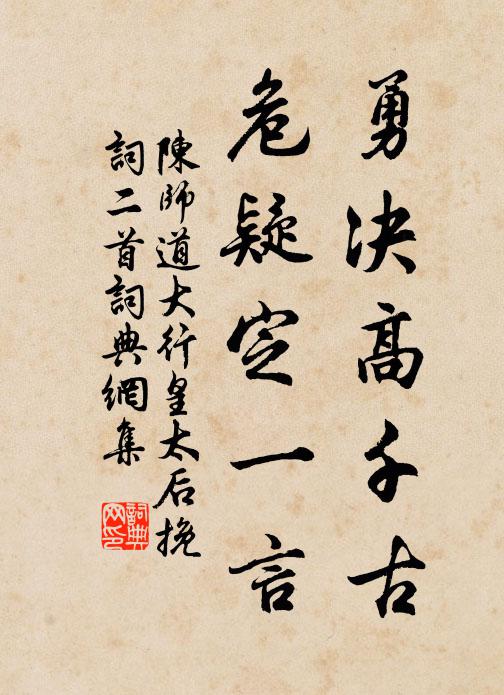 勇决高千古
危疑定一言
陳師道大行皇太后挽
詞二首詞典網集
詞典
网印